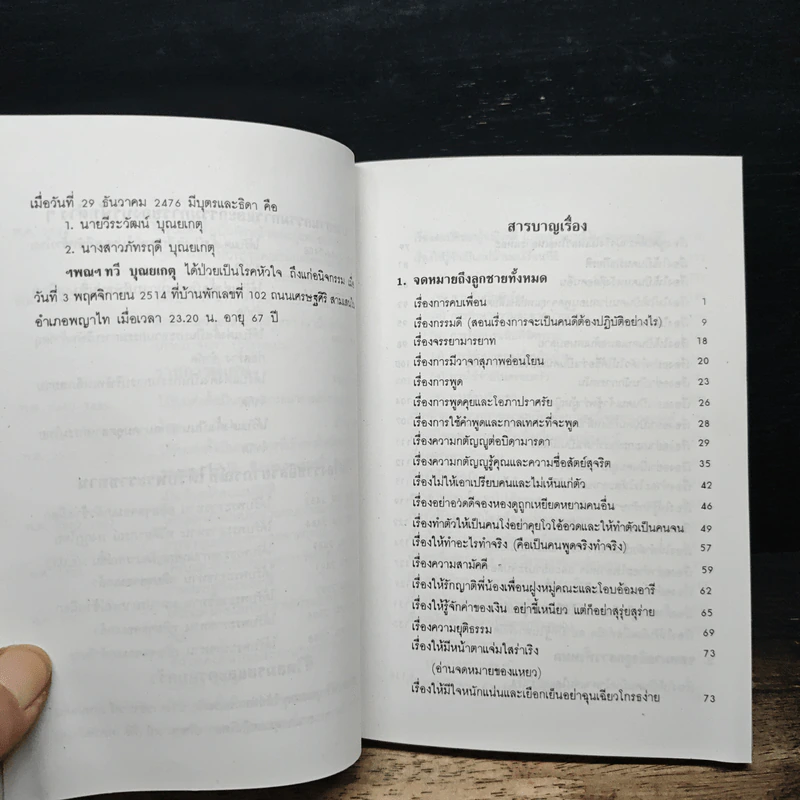 เมื่อวันที่ 29 ธันวาคม 2476 มีบุตรและธิดา คือ
1. นายวีระวัฒน์ บุณยเกตุ
2. นางสาวภัทรฤดี บุณยเกตุ
ฯพณฯ ทวี บุณยเกตุ ได้ป่วยเป็นโรคหัวใจ ถึงแก่อนิจกรรม เมื่อ
วันที่ 3 พฤศจิกายน 2514 ที่บ้านพักเลขที่ 102 ถนนเศรษฐศิริ
อำเภอพญาไท เมื่อเวลา 23.20 น. อายุ 67 ปี
สารบาญเรื่อง
1. จดหมายถึงลูกชายทั้งหมด
เรื่องการคบเพื่อน 1
เรื่องกรรมดี (สอนเรื่องการจะเป็นคนดีต้องปฏิบัติอย่างไร) 9
เรื่องจรรยามารยาท 18
เรื่องการมีวาจาสุภาพอ่อนโยน 20
เรื่องการพูด 23
เรื่องการพูดคุยและโอภาปราศรัย 26
เรื่องการใช้คำพูดและกาลเทศะที่จะพูด 28
เรื่องความกตัญญูต่อบิดามารดา 29
เรื่องความกตัญญูรู้คุณและความซื่อสัตย์สุจริต 35
เรื่องไม่ให้เอาเปรียบคนและไม่เห็นแก่ตัว 42
เรื่องอย่าอวดดีจองหองดูถูกเหยียดหยามคนอื่น 46
เรื่องทำตัวให้เป็นคนโง่อย่าคุยโวโอ้อวดและให้ทำตัวเป็นคนจน 49
เรื่องให้ทำอะไรทำจริง (คือเป็นคนพูดจริงทำจริง) 57
เรื่องความสามัคคี 59
เรื่องให้รักญาติพี่น้องเพื่อนฝูงหมู่คณะและโอบอ้อมอารี 62
เรื่องให้รู้จักค่าของเงิน อย่าขี้เหนียว แต่ก็อย่าสุรุ่ยสุร่าย 65
เรื่องความยุติธรรม 69
เรื่องให้มีหน้าตาแจ่มใสร่าเริง 73
(อ่านจดหมายของแหยว)
เรื่องให้มีใจหนักแน่นและเยือกเย็นอย่าฉุนเฉียวโกรธง่าย 73